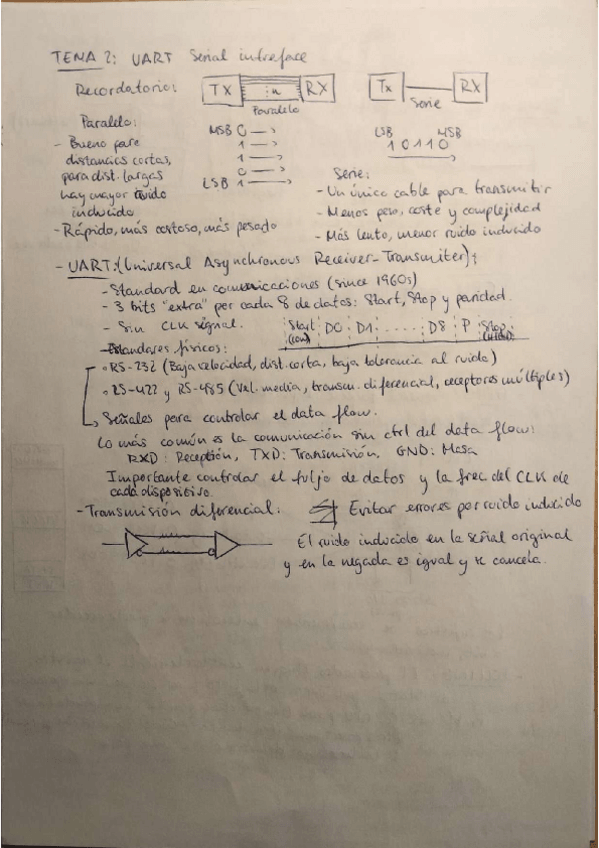 TEMA 2: UART Serial intreface
Recordatorio:
TX n RX
Paralelo
Tx RX
Serie
Paralelo:
- Bueno para
distancias cortas,
para dist. largas
hay mayor ruido
inducido
- Rápido, más costoso, más pesado
MSB 0
1
1
0
LSB 1
LSB MSB
1 0 1 1 0
Serie:
- Un único cable para transmitir
- Menos peso, coste y complejidad
- Más lento, menor ruido inducido
- UART:(Universal Asynchronous Receiver-Transmiter):
- Standard en comunicaciones (since 1960s)
- 3 bits "extra" por cada 8 de datos: Start, Stop y paridad.
- Sin CLK signal.
Start D0 D1 ...... D8 P Stop
(low)
- Estandares físicos:
• RS-232 (Baja velocidad, dist. corta, baja tolerancia al ruido)
• RS-422 y RS-485 (Vel. media, transm. diferencial, receptores múltiples)
Señales para controlar el data flow.
Lo más común es la comunicación sin ctrl del data flow:
RXD: Recepción, TXD: Transmisión, GND: Masa
Importante controlar el fuljo de datos y la frec del CLK de
cada dispositivo.
- Transmisión diferencial:
Evitar errores por ruido inducido
El ruido inducido en la señal original
y en la negada es igual y se cancela.